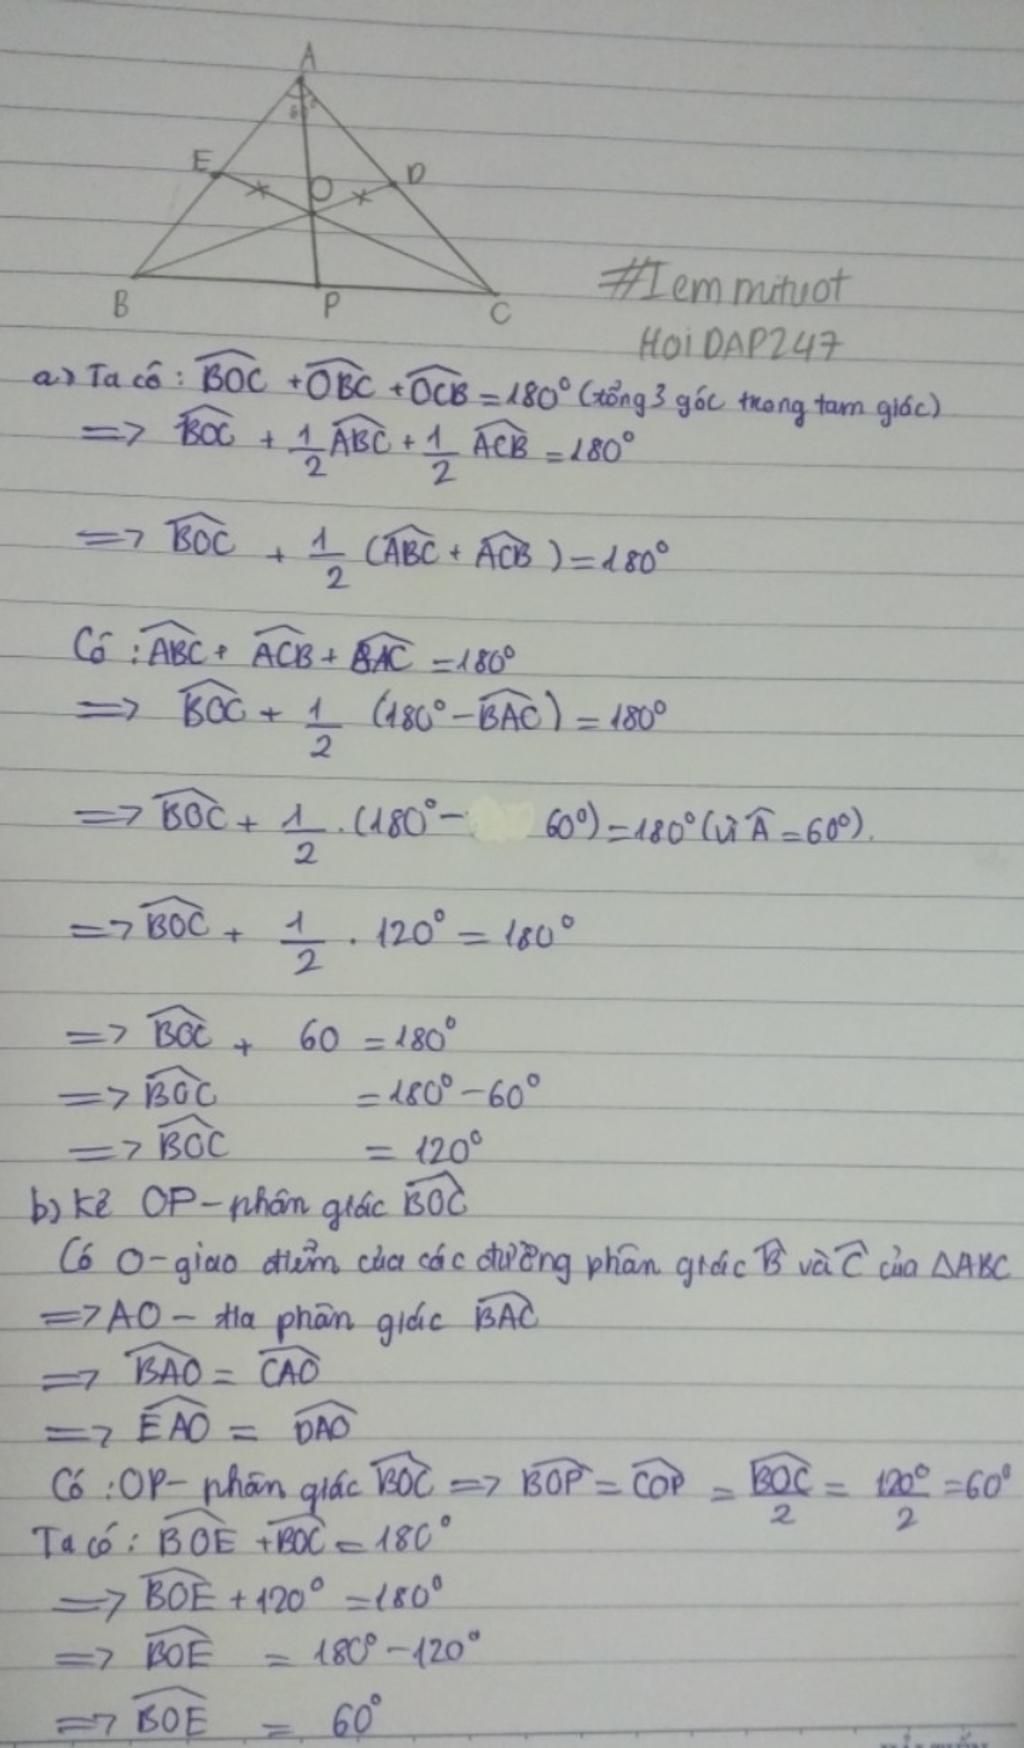 A
60°
E
D
O
B
P
C
#Iemmituot
HoiDAP247
a) Ta có: \widehat{BOC} + \widehat{OBC} + \widehat{OCB} = 180° (tổng 3 góc trong tam giác)
=> \widehat{BOC} + \frac{1}{2} \widehat{ABC} + \frac{1}{2} \widehat{ACB} = 180°
=> \widehat{BOC} + \frac{1}{2} (\widehat{ABC} + \widehat{ACB}) = 180°
Có: \widehat{ABC} + \widehat{ACB} + \widehat{BAC} = 180°
=> \widehat{BOC} + \frac{1}{2} (180° - \widehat{BAC}) = 180°
=> \widehat{BOC} + \frac{1}{2} . (180° - 60°) = 180° (vì \widehat{A} = 60°).
=> \widehat{BOC} + \frac{1}{2} . 120° = 180°
=> \widehat{BOC} + 60 = 180°
=> \widehat{BOC} = 180° - 60°
=> \widehat{BOC} = 120°
b) Kẻ OP - phân giác \widehat{BOC}
Có O - giao điểm của các đường phân giác \widehat{B} và \widehat{C} của ΔABC
=> AO - tia phân giác \widehat{BAC}
=> \widehat{BAO} = \widehat{CAO}
=> \widehat{EAO} = \widehat{DAO}
Có: OP - phân giác \widehat{BOC} => \widehat{BOP} = \widehat{COP} = \frac{\widehat{BOC}}{2} = \frac{120°}{2} = 60°
Ta có: \widehat{BOE} + \widehat{BOC} = 180°
=> \widehat{BOE} + 120° = 180°
=> \widehat{BOE} = 180° - 120°
=> \widehat{BOE} = 60°